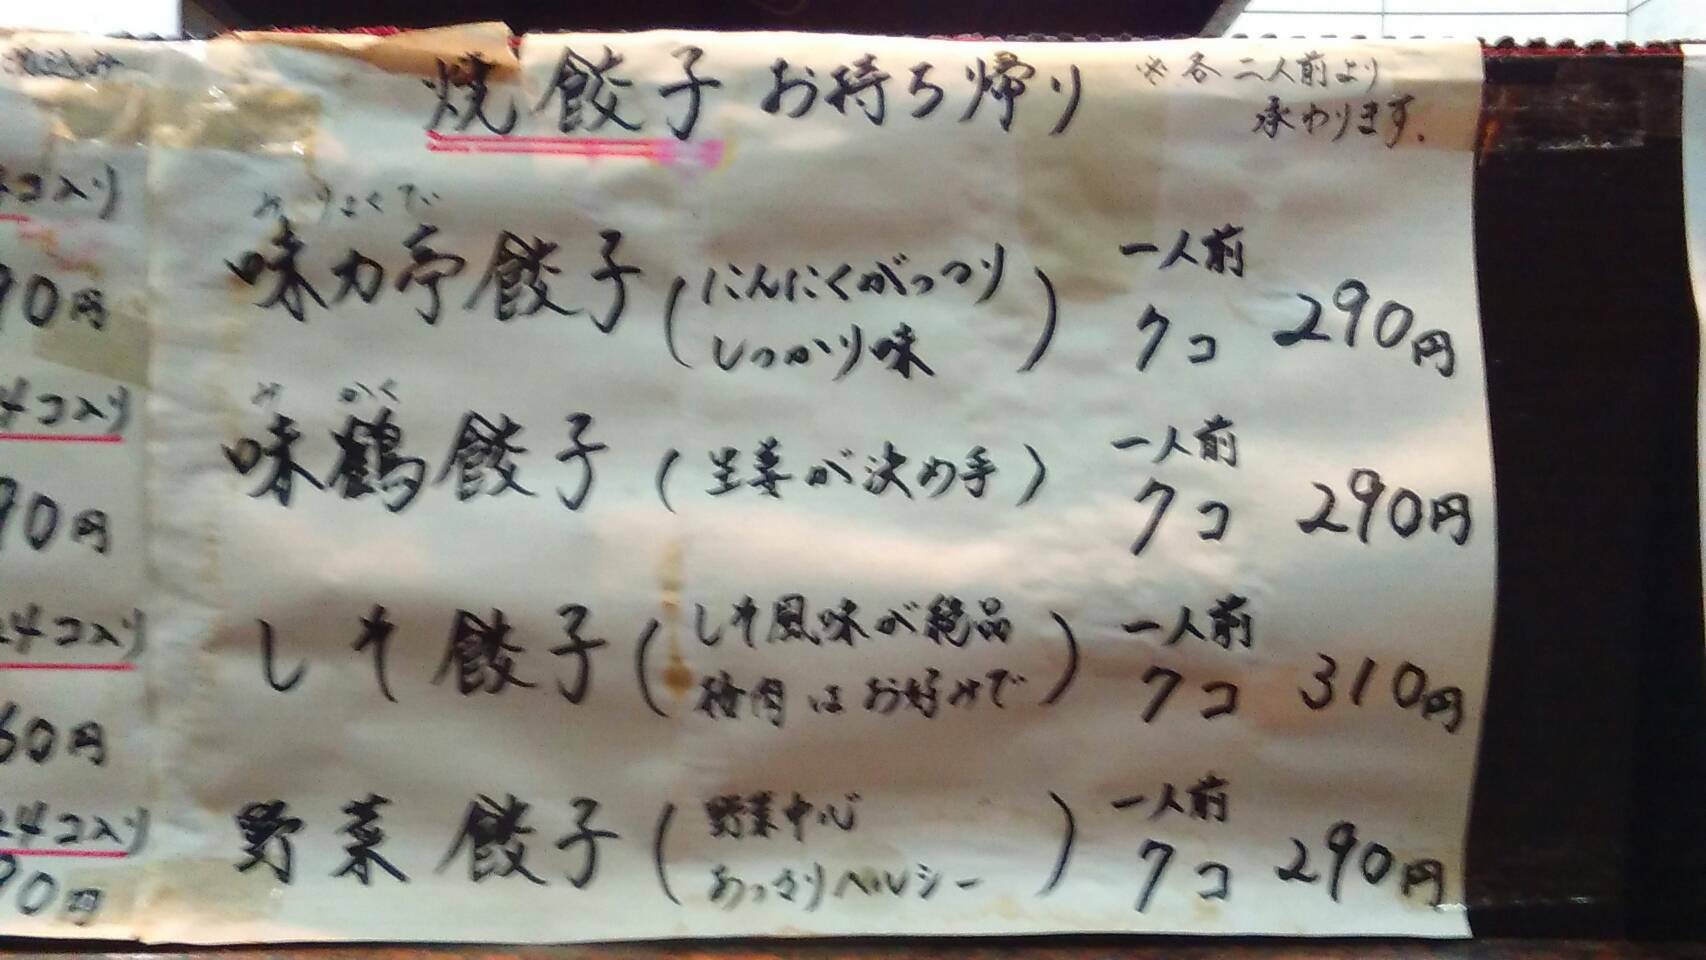 焼餃子お持ち帰り
※各二人前より
承わります。
みりょくてい
味力亭餃子(にんにくがっつり
しっかり味)
一人前
7コ 290円
みかく
味鶴餃子(生姜が決め手)
一人前
7コ 290円
しそ餃子(しそ風味が絶品
梅肉はお好みで)
一人前
7コ 310円
野菜餃子(野菜中心
あっさりヘルシー)
一人前
7コ 290円
コ入り
90円
4コ入り
90円
24コ入り
60円
24コ入り
90円